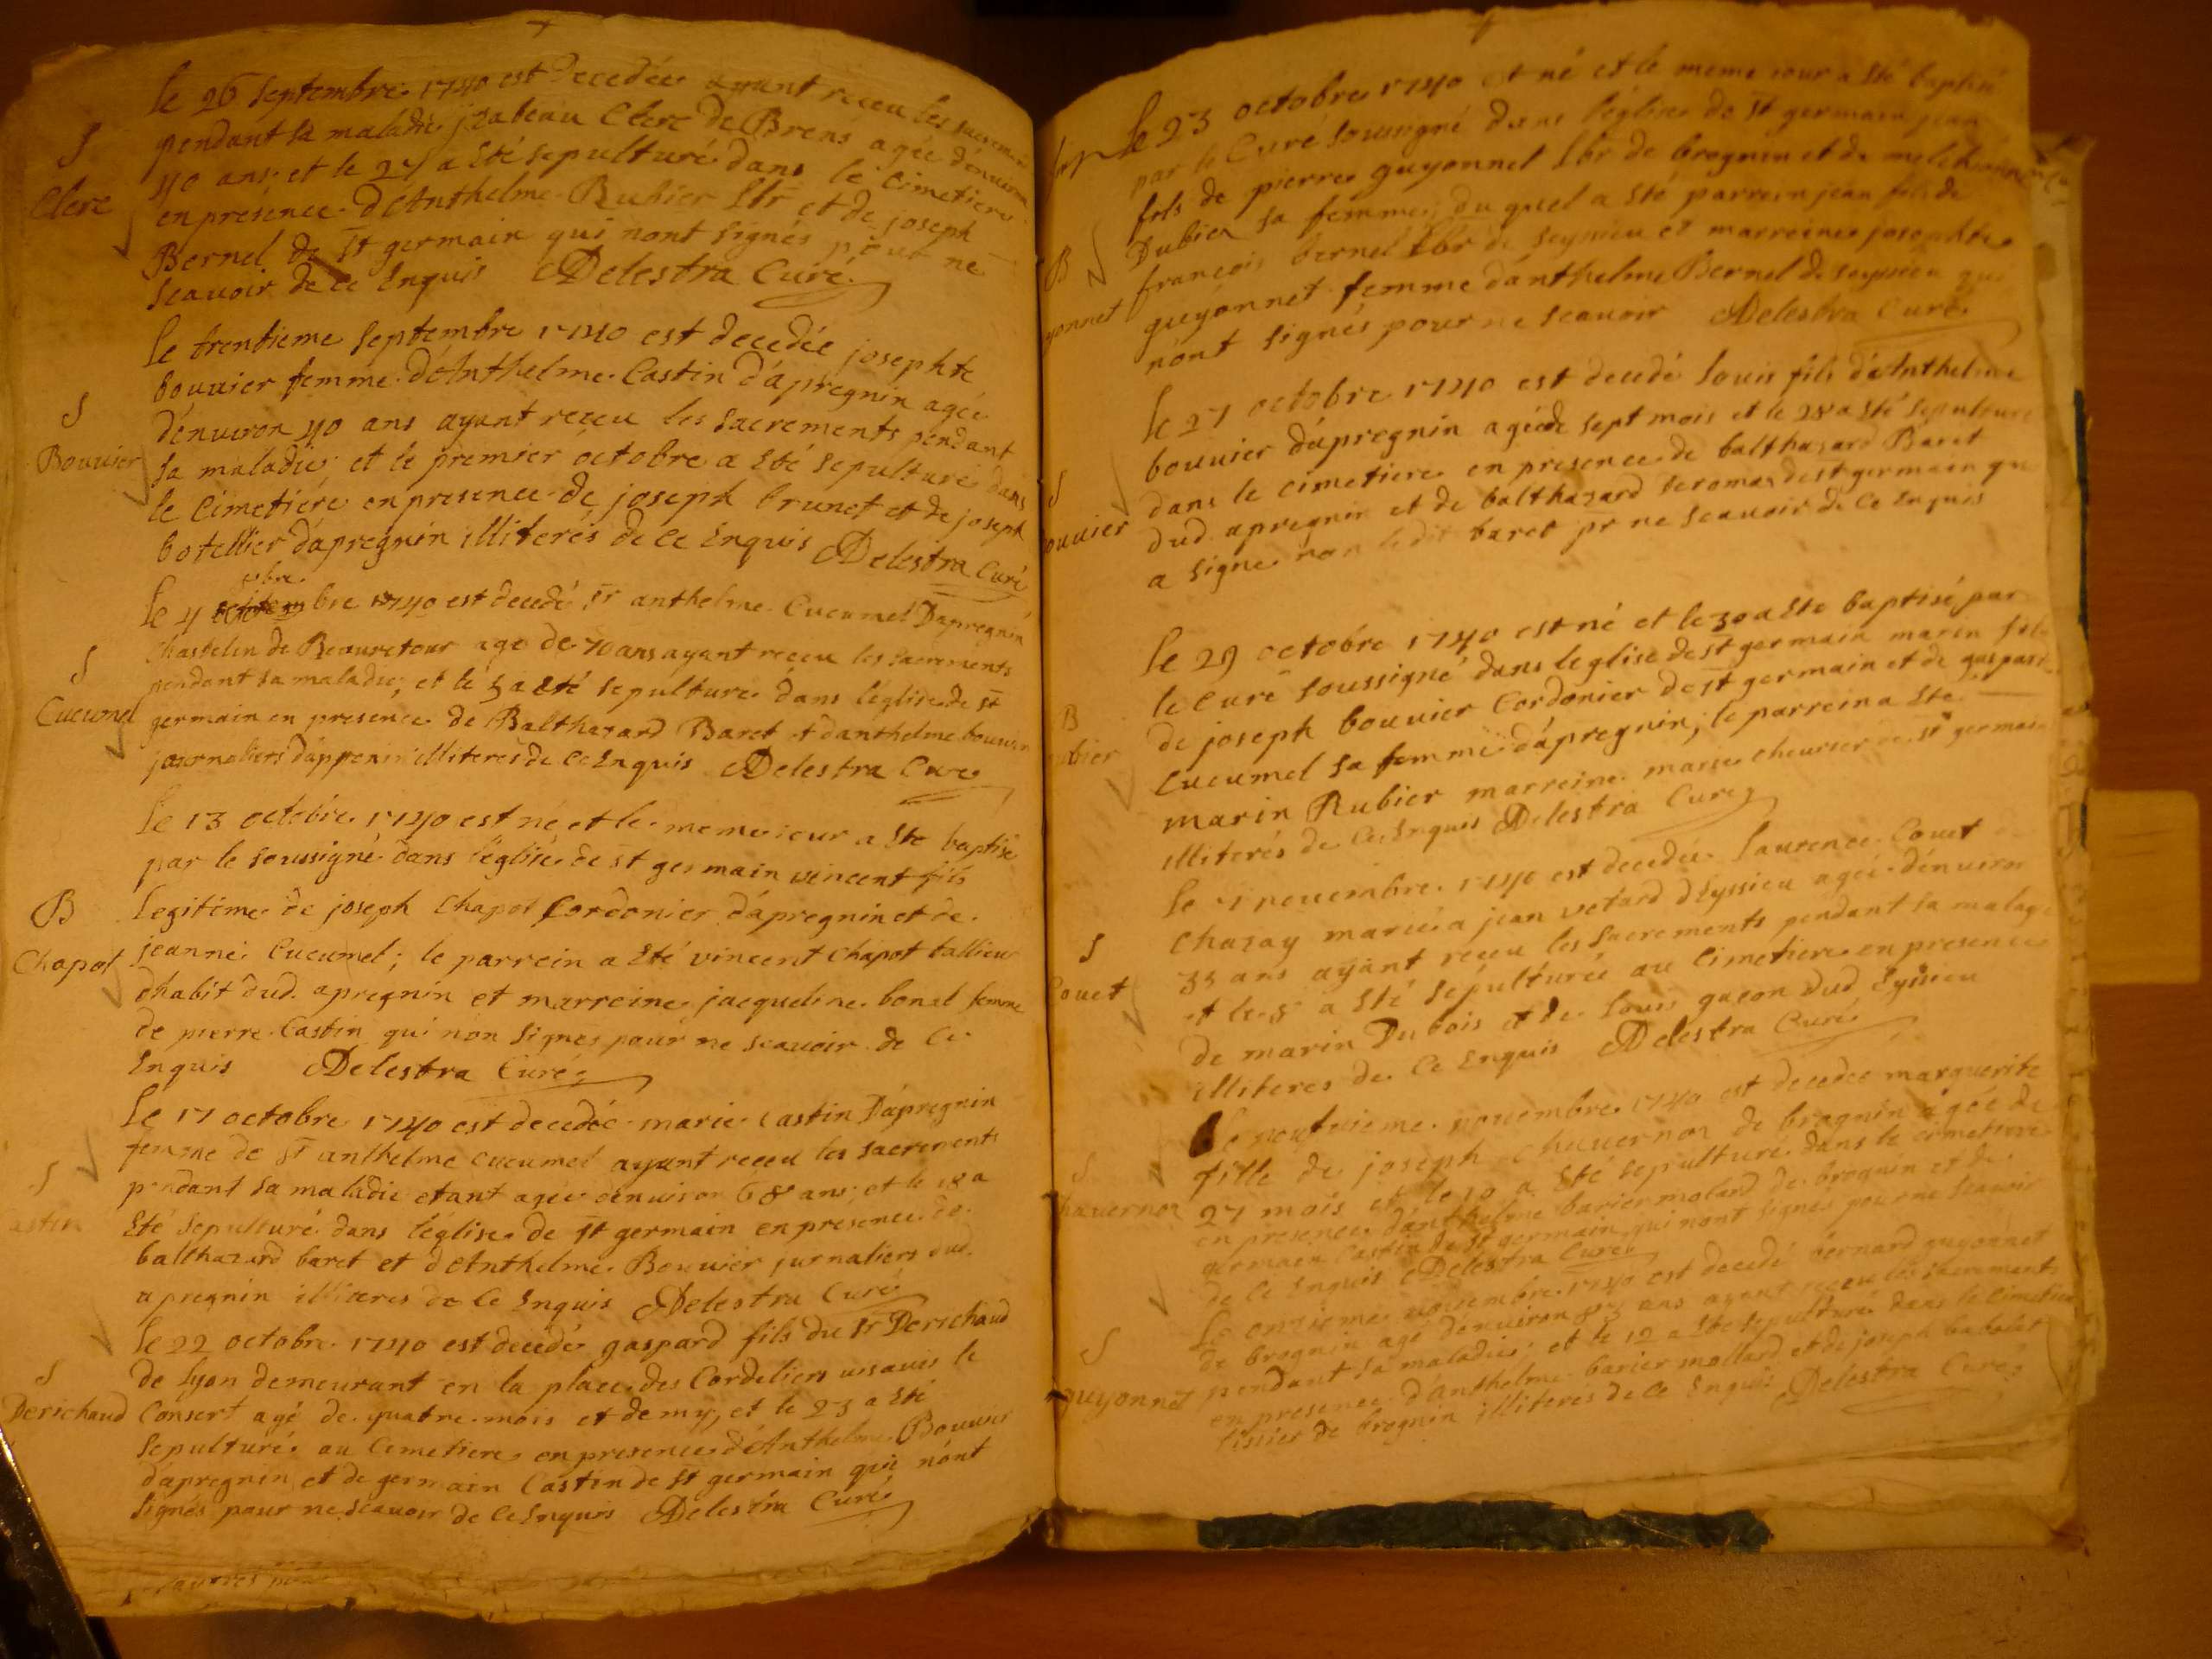 le 26 septembre 1740 est decedée ayant receu les sacrements
pendant sa maladie jzabeau Clerc de Brens agée d'enuiron
S
40 ans et le 27 a Eté sepulturé dans le Cimetiere
Clerc
en présence d'Anthelme Rubier Lbr et de joseph
Bernel de st germain qui nont signés pour ne
scauoir de ce Enquis Delestra Curé
le trentieme septembre 1740 est decedée josephte
bouuier femme d'Anthelme Castin d'apregnin agée
S
d'enuiron 40 ans ayant receu les sacrements pendant
Bouuier
sa maladie; et le premier octobre a Eté sepulturé dans
le Cimetiére en presence de joseph brunet et de joseph
botellier d'apregnin illiterés de ce Enquis Delestra Curé
obre
le 4 bre 1740 est decedé sr anthelme Cucumel Dapregnin
Chastelin de Beauretour age de 70 ans ayant receu les sacrements
S
pendant sa maladie; et le 5 a Eté sepulture dans l'église de st
Cucumel
germain en presence de Balthazard Baret et d'anthelme bouuier
journaliers illiteres de ce Enquis Delestra Cure
le 13 octobre 1740 est né et le meme iour a Ete baptisé
par le soussigné dans l'église de st germain vincent fils
B
legitime de joseph Chapot Cordonier d'apregnin et de
Chapot
jeanne Cucumel; le parrein a Eté vincent Chapot tallieur
dhabit dud. apregnin et marreine jacqueline bonal femme
de pierre Castin qui non signés pour ne scauoir de Ce
Enquis Delestra Curé
le 17 octobre 1740 est decedée marie Castin Dapregnin
femme de sr anthelme cucumel ayant receu les sacrements
S
pendant sa maladie etant agée denuiron 68 ans; et le 18 a
astin
Eté sepulturé dans l'église de st germain en presence de
balthazard baret et d'Anthelme Bouuier jurnaliers dud.
apregnin illiteres de Ce Enquis Delestra Curé
le 22 octobre 1740 est decedé gaspard fils du sr Derichaud
S
de lyon demeurant en la place des Cordeliers uisauis le
Derichaud
Consert agé de quatre mois et demy, et le 23 a Eté
sepulturé au Cimetiere en presence d'Anthelme Bouuier
d'apregnin et de germain Castin de st germain qui nónt
signés pour ne scauoir de Ce Enquis Delestra Curé
le 23 octobre 1740 est né et le meme iour a Eté baptisé
par le Curé soussigné dans l'église de st germain jean
fils de pierre guyonnet Lbr de brognin et de
B
Dubier sa femme; du quel a Eté parrein jean fils de
yonnet
francois bernel Lbr de seyssieu et marreine josephte
guyonnet femme d'anthelme Bernel de seyssieu qui
nont signés pour ne scauoir Delestra Curé
le 27 octobre 1740 est decedé louis fils d'Anthelme
S
bouuier d'apregnin agé de sept mois et le 28 a Eté sepulture
ouuier
dans le cimetiere en presence de balthazard Baret
dud. apregnin et de balthazard de st germain qui
a signe non ledit baret pr ne scauoir de Ce Enquis
le 29 octobre 1740 est né et le 30 a Ete baptisé par
le Curé soussigné dans leglise de st germain marin fils
B
de joseph bouuier Cordonier de st germain et de gasparde
Cucumel sa femme d'apregnin; le parrein a Ete
marin Rubier marreine marie de st germain
illiterés de Ce Enquis Delestra Curé
novembre 1740 est decedée laurence Couet
S
Chazay mariée a jean votard d'Eyssieu agée d'enuiron
Couet
35 ans ayant receu les sacrements pendant sa
et le 8 a Eté sépulturée au Cimetiere en presence
de marin Dubois et de louis gacon dud Eyssieu
illiteres de Ce Enquis Delestra Curé
le neufuieme nouembre 1740 est decedée marguerite
S
fille de joseph chauernon de brognin agée de
hauernon
27 mois et le 10 a Eté sepulturé dans le cimetiere
en presence d'anthelme barier molard de brognin et de
germain Castin de st germain qui nont signés pour ne scauoir
de Ce Enquis Delestra Curé
le onzieme nouembre 1740 est decedé bernard guyonnet
S
de brognin agé d'enuiron ans ayant receu les sacrements
guyonnet
pendant sa maladie; et le 12 a Eté sepulturé dans le Cimetiere
en presence d'anthelme barier mollard et de joseph
de brognin illiteres de Ce Enquis Delestra Curé